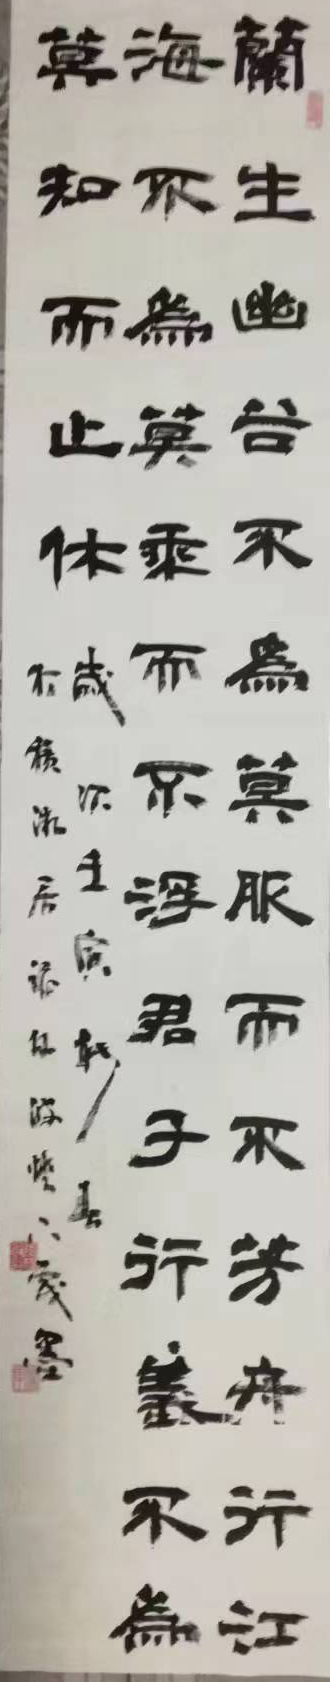 蘭生幽谷不為莫服而不芳舟行江
海不為莫乘而不浮君子行義不為
莫知而止休
歲次壬寅 春
於 居 墨